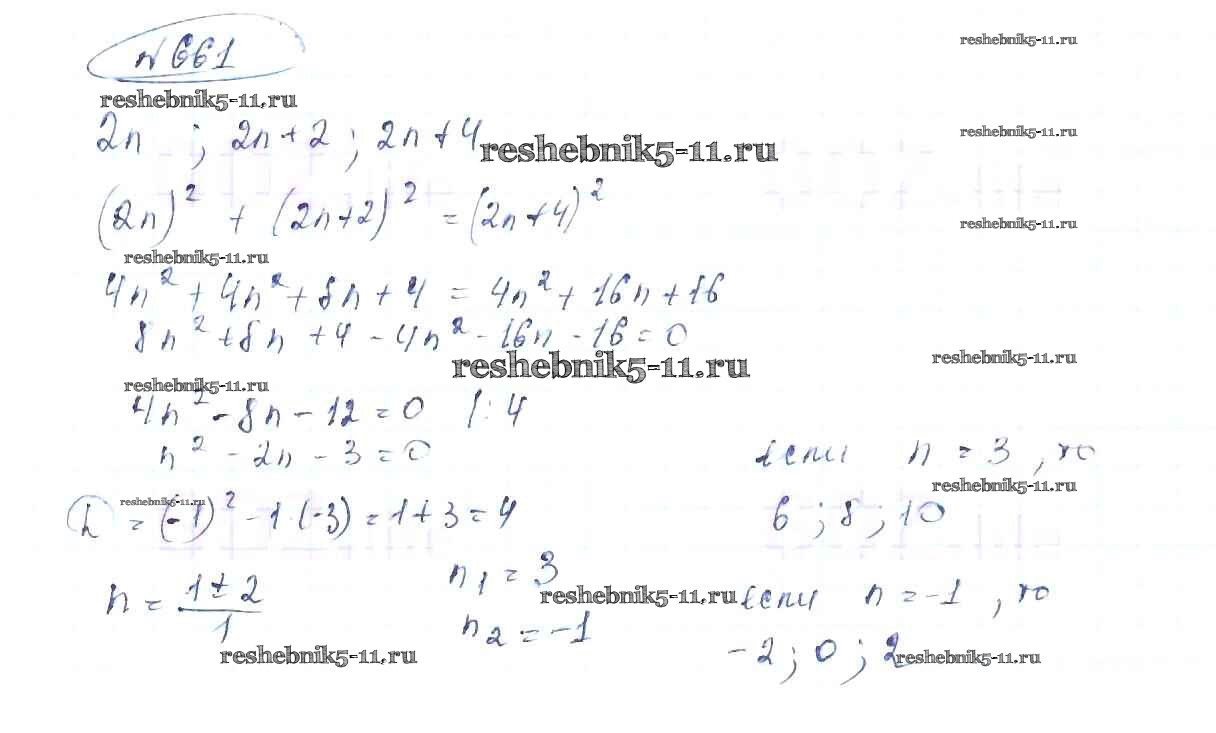 №661
reshebnik5-11.ru
reshebnik5-11.ru
2n ; 2n+2 ; 2n+4
reshebnik5-11.ru
reshebnik5-11.ru
(2n)² + (2n+2)² = (2n+4)²
reshebnik5-11.ru
reshebnik5-11.ru
4n² + 4n² + 8n + 4 = 4n² + 16n + 16
8n² + 8n + 4 - 4n² - 16n - 16 = 0
reshebnik5-11.ru
reshebnik5-11.ru
reshebnik5-11.ru
4n² - 8n - 12 = 0 |:4
n² - 2n - 3 = 0
если n = 3, то
reshebnik5-11.ru
reshebnik5-11.ru
= (-1)² - 1·(-3) = 1 + 3 = 4
6 ; 8 ; 10
n = (1 ± 2)/1
n₁ = 3
reshebnik5-11.ru
n₂ = -1
если n = -1, то
reshebnik5-11.ru
-2 ; 0 ; 2
reshebnik5-11.ru